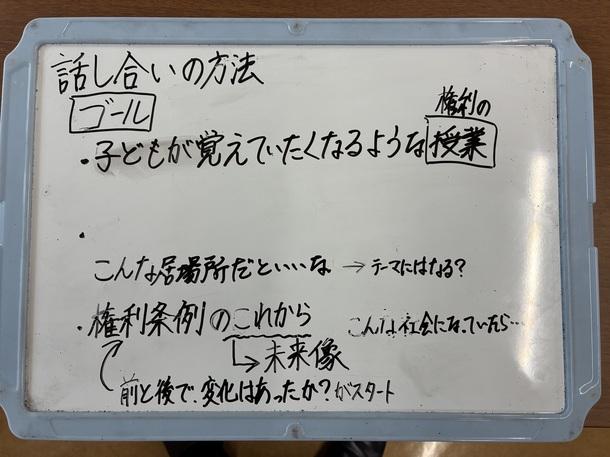 話し合いの方法
ゴール
権利の
・子どもが覚えていたくなるような授業
・
こんな居場所だといいな → テーマにはなる?
・権利条例のこれから
こんな社会になっていたら…
↳未来像
前と後で、変化はあったか?がスタート